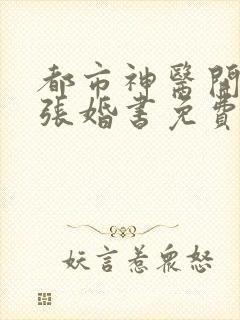 都市神醫開
張婚書免費
妖言惹眾怒